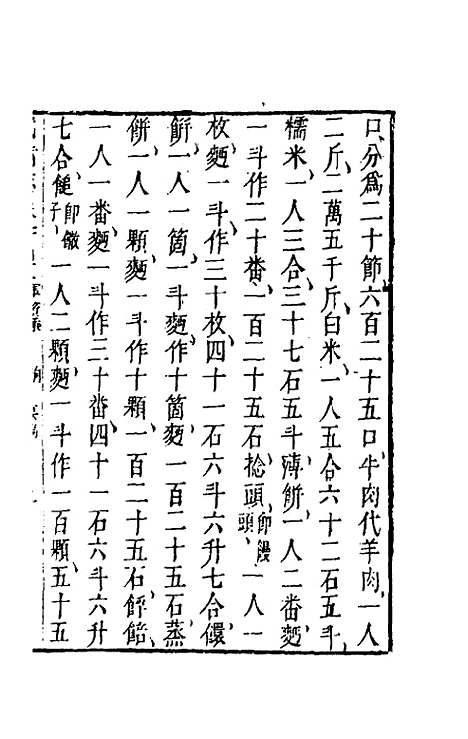 口、分爲二十節、六百二十五口、牛肉代羊肉、一人
二斤、二萬五千斤、白米、一人五合、六十二石五斗、
糯米、一人三合、三十七石五斗、薄餅、一人二番、麪
一斗作二十番、一百二十五石、捻頭、即饅頭、一人一
枚、麪一斗作三十枚、四十一石六斗六升七合、餻
餅、一人一箇、一斗麪作十箇、麪一百二十五石、蒸
餅、一人一顆、麪一斗作十顆、一百二十五石、餺飥、
一人一番、麪一斗作三十番、四十一石六斗六升
七合、䭔子、即饊、一人二顆、麪一斗作一百顆、五十五